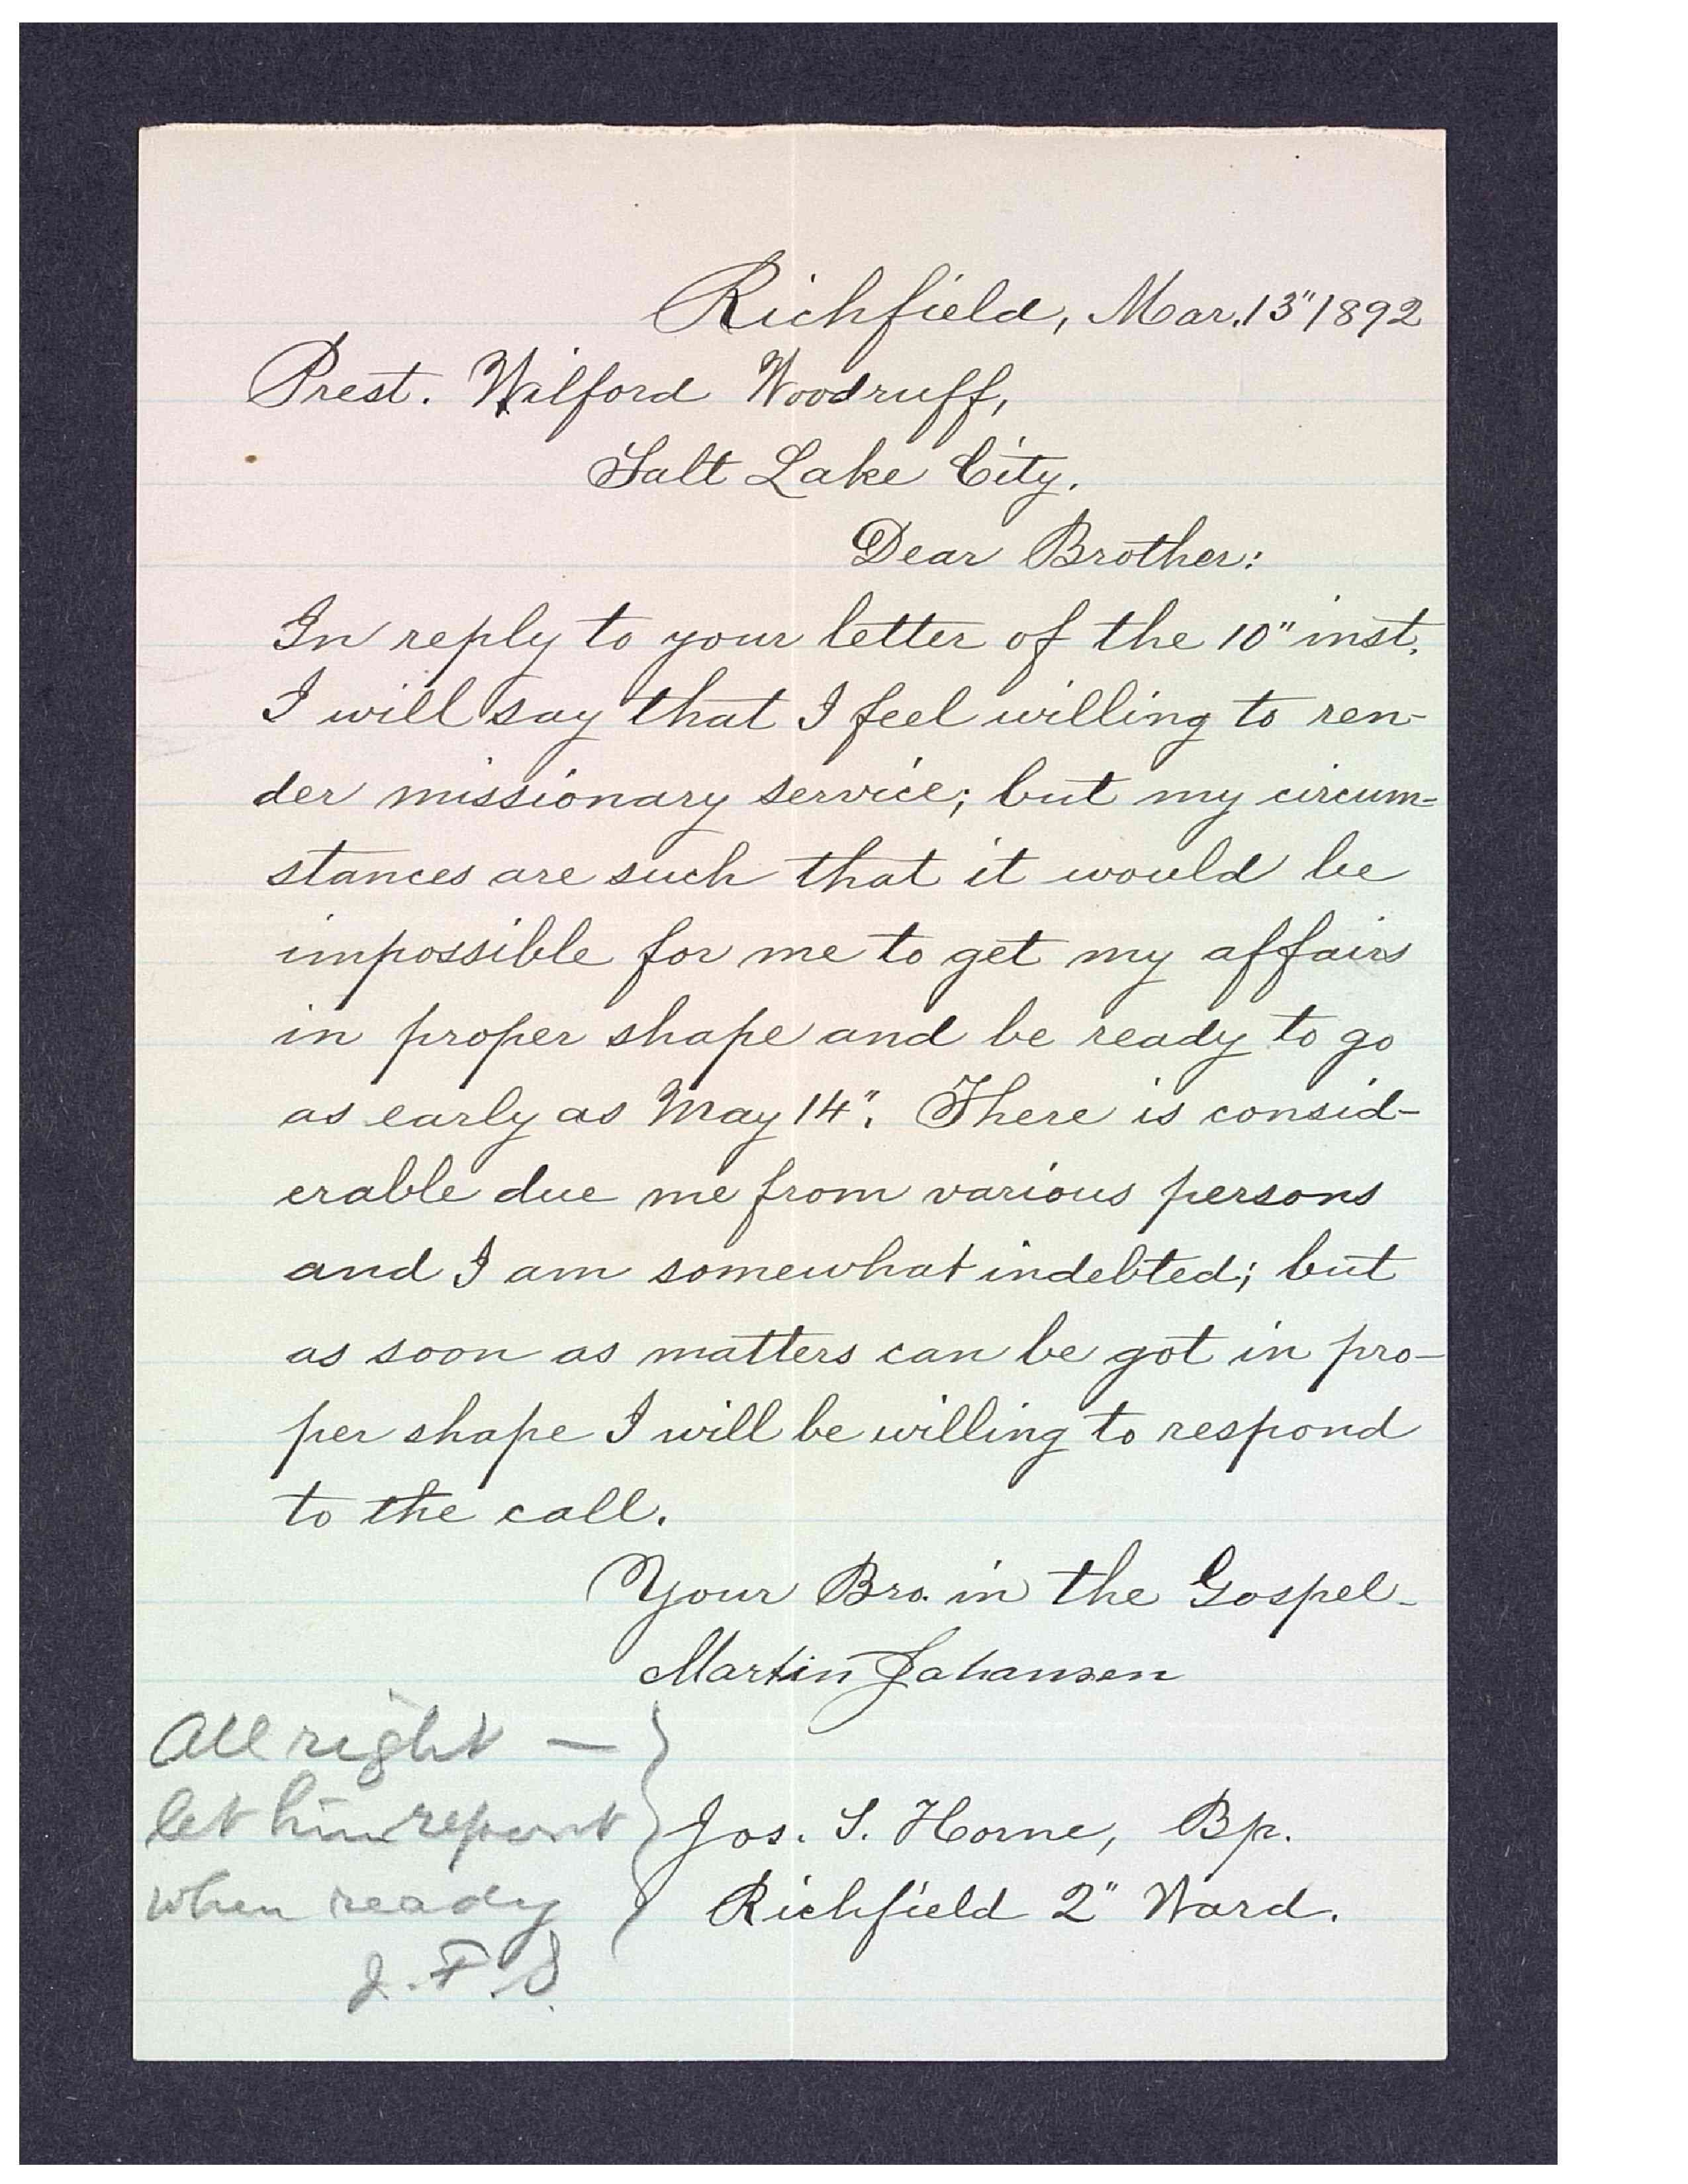 Richfield, Mar. 13" 1892
Prest. Wilford Woodruff,
Salt Lake City.
Dear Brother:
In reply to your letter of the 10" inst.
I will say that I feel willing to ren-
der missionary service; but my circum-
stances are such that it would be
impossible for me to get my affairs
in proper shape and be ready to go
as early as May 14". There is consid-
erable due me from various persons
and I am somewhat indebted; but
as soon as matters can be got in pro-
per shape I will be willing to respond
to the call.
Your Bro. in the Gospel-
Martin Johansen
Jos. S. Horne, Bp.
Richfield 2" Ward.
All right —
let him report
when ready
J. F. S.